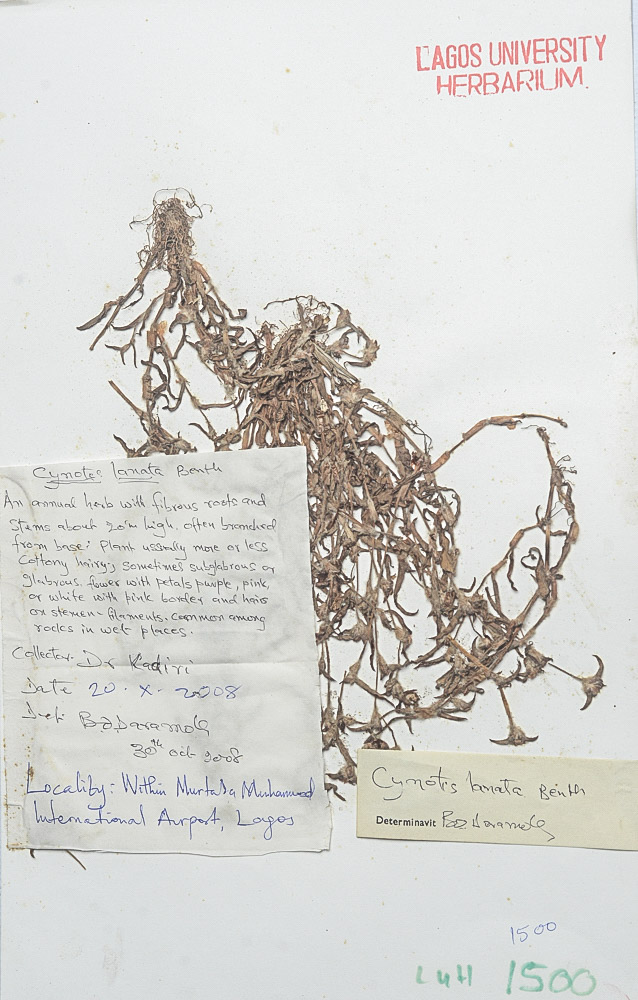 LAGOS UNIVERSITY
HERBARIUM.
Cynotis lanata Benth
An annual herb with fibrous roots and
stems about 20cm high, often branched
from base. Plant usually more or less
cottony hairy; sometimes subglabrous or
glabrous. flower with petals purple, pink,
or white with pink border and hairs
on stemen filaments. common among
rocks in wet places.
Collector. Dr Kadiri
Date 20. X. 2008
Det: B.O. Daramola
30th oct 2008
Locality: Within Murtala Muhammed
International Airport, Lagos
Cynotis lanata Benth
Determinavit B.O. Daramola
1500
LUH 1500